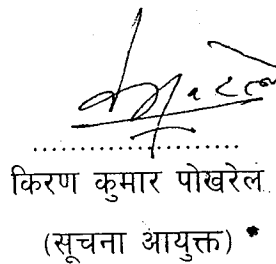 ..............................
किरण कुमार पोखरेल
(सूचना आयुक्त)